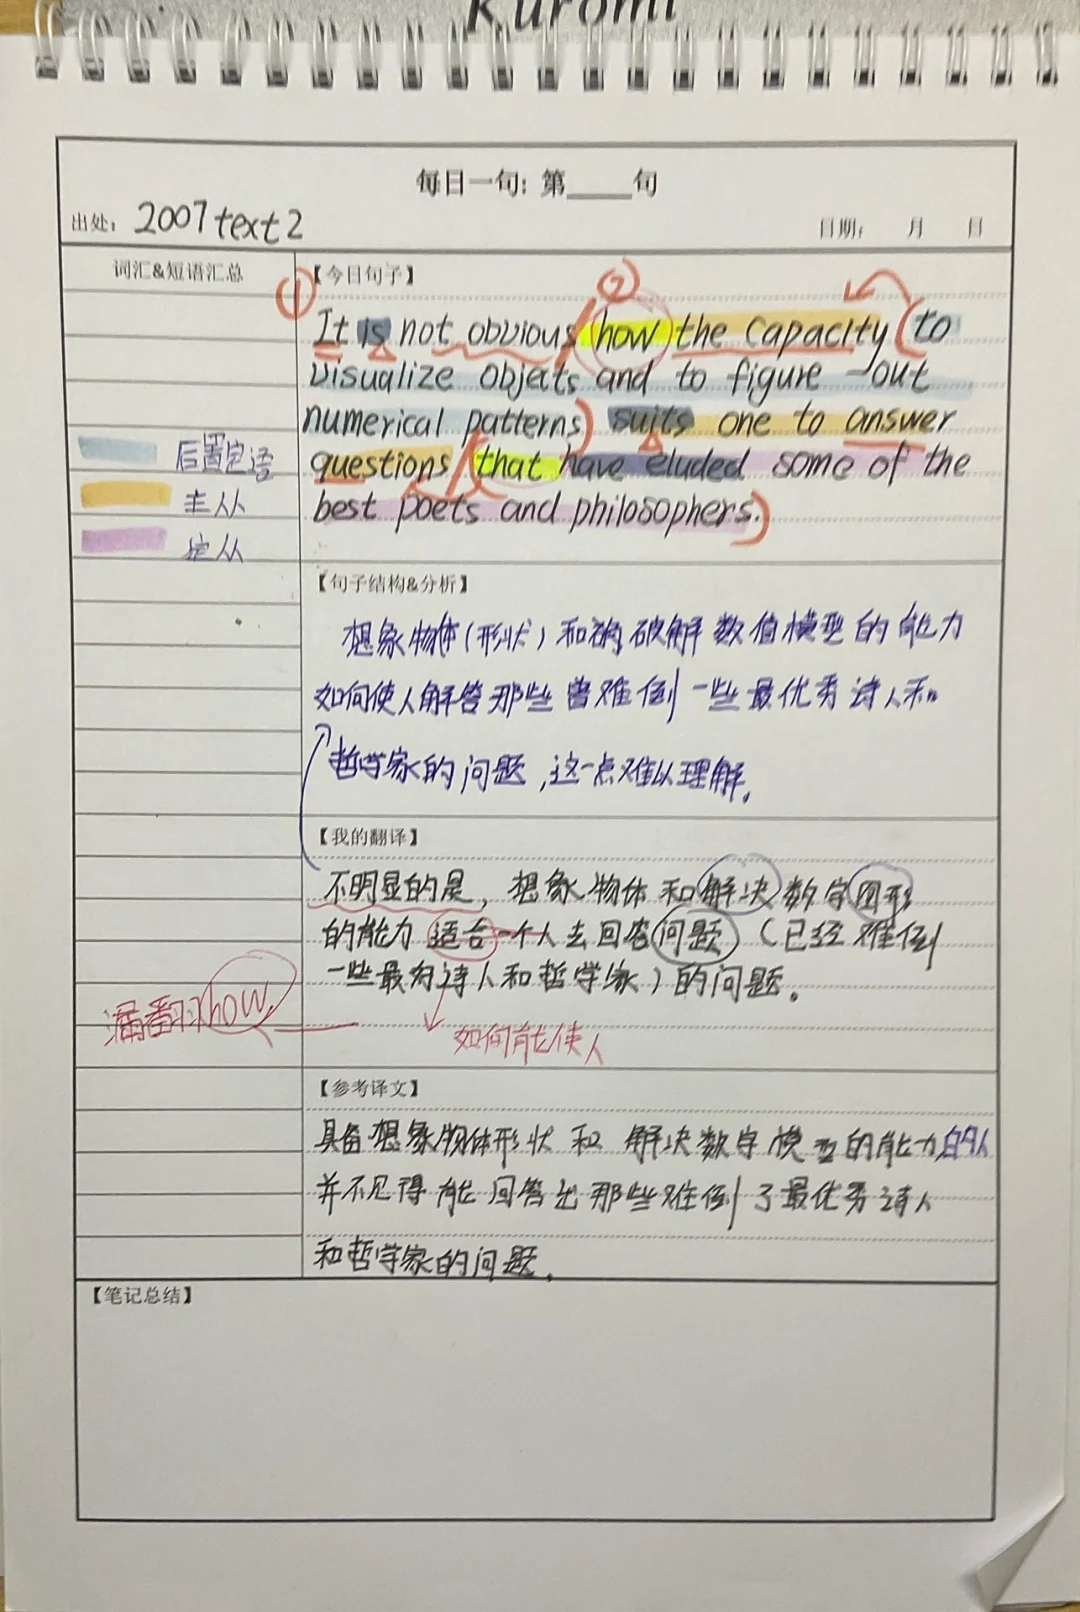 Kuromi
每日一句: 第____句
出处: 2007 text 2
日期: 月 日
词汇&短语汇总
【今日句子】
① ②
It is not obvious how the capacity (to
visualize objects and to figure out
numerical patterns) suits one to answer
questions (that have eluded some of the
best poets and philosophers.)
后置定语
主从
定从
【句子结构&分析】
想象物体(形状)和 破解数值模型的能力
如何使人解答那些曾难倒一些最优秀诗人和
哲学家的问题,这一点难以理解。
【我的翻译】
不明显的是,想象物体和解决数字图形
的能力适合一个人去回答问题(已经难倒
一些最为诗人和哲学家)的问题。
漏翻译how
如何能使人
【参考译文】
具备想象物体形状和解决数字模型的能力的人
并不见得能回答出那些难倒了最优秀诗人
和哲学家的问题。
【笔记总结】